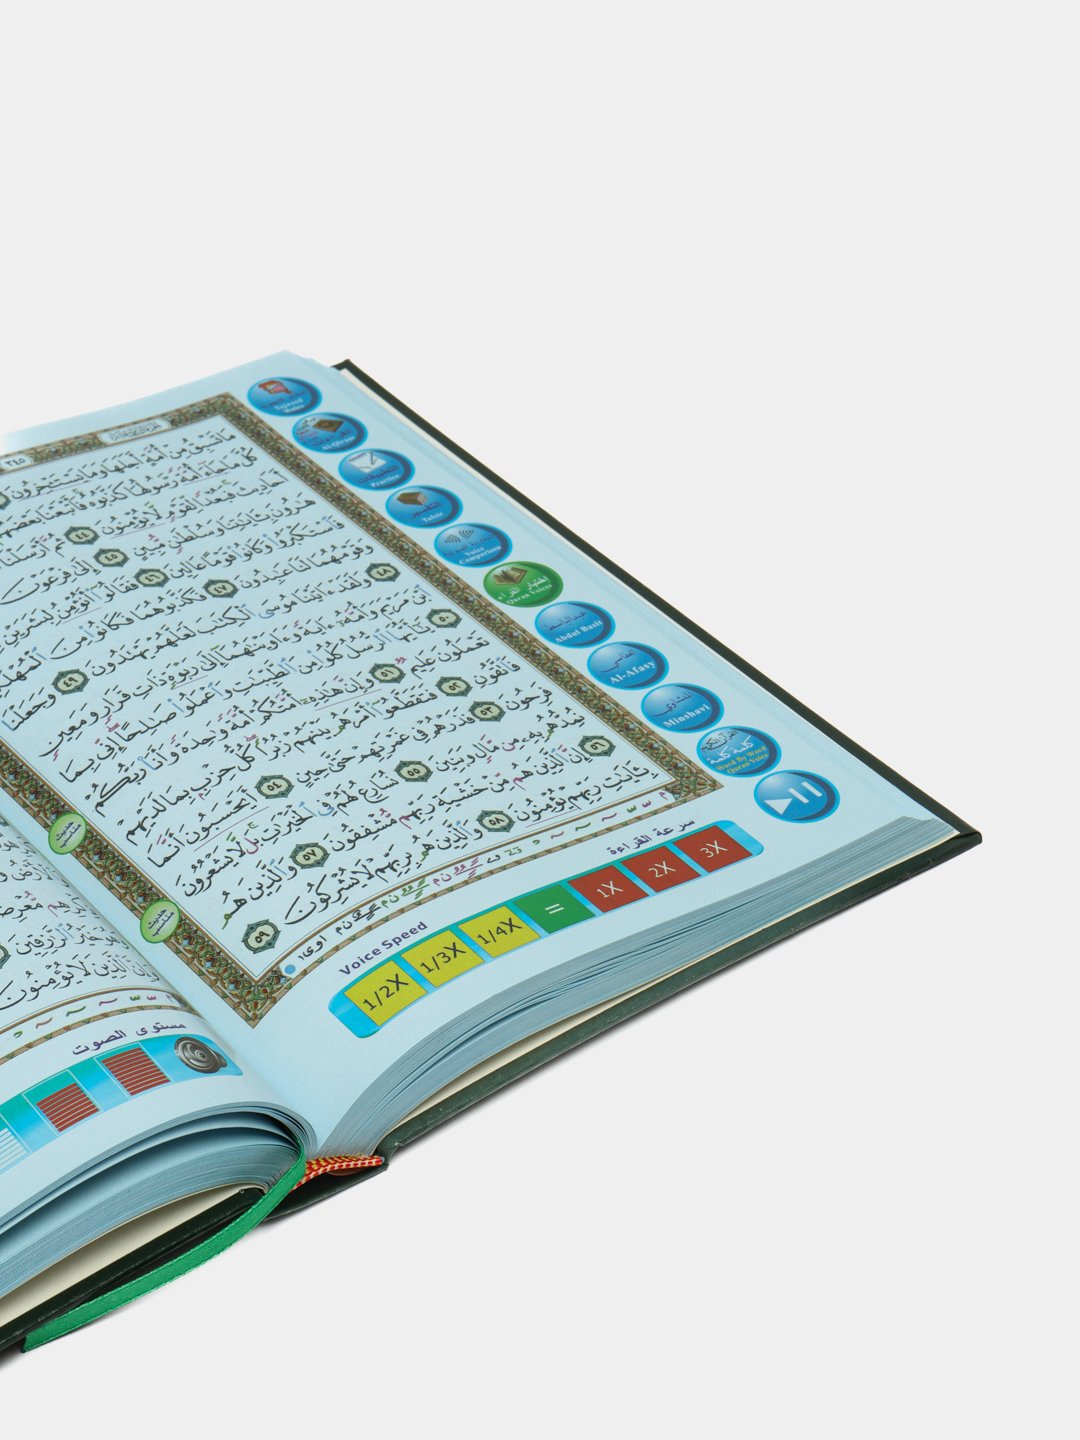 ٣٤٥
مَا تَسْبِقُ مِنْ أُمَّةٍ أَجَلَهَا وَمَا يَسْتَـْٔخِرُونَ
كُلَّ مَا جَآءَ أُمَّةً رَّسُولُهَا كَذَّبُوهُ فَأَتْبَعْنَا بَعْضَهُم
أَحَادِيثَ فَبُعْدًا لِّقَوْمٍ لَّا يُؤْمِنُونَ ٤٤ ثُمَّ أَرْسَلْنَا
هَٰرُونَ بِـَٔايَٰتِنَا وَسُلْطَٰنٍ مُّبِينٍ ٤٥ إِلَىٰ فِرْعَوْنَ
فَٱسْتَكْبَرُوا۟ وَكَانُوا۟ قَوْمًا عَالِينَ ٤٦ فَقَالُوٓا۟ أَنُؤْمِنُ لِبَشَرَيْنِ
وَقَوْمُهُمَا لَنَا عَٰبِدُونَ ٤٧ فَكَذَّبُوهُمَا فَكَانُوا۟ مِنَ ٱلْمُهْلَكِينَ
٤٨ وَلَقَدْ ءَاتَيْنَا مُوسَى ٱلْكِتَٰبَ لَعَلَّهُمْ يَهْتَدُونَ ٤٩ وَجَعَلْنَا
ٱبْنَ مَرْيَمَ وَأُمَّهُۥٓ ءَايَةً وَءَاوَيْنَٰهُمَآ إِلَىٰ رَبْوَةٍ ذَاتِ قَرَارٍ وَمَعِينٍ
٥٠ يَٰٓأَيُّهَا ٱلرُّسُلُ كُلُوا۟ مِنَ ٱلطَّيِّبَٰتِ وَٱعْمَلُوا۟ صَٰلِحًا إِنِّى بِمَا
تَعْمَلُونَ عَلِيمٌ ٥١ وَإِنَّ هَٰذِهِۦٓ أُمَّتُكُمْ أُمَّةً وَٰحِدَةً وَأَنَا۠ رَبُّكُمْ
فَٱتَّقُونِ ٥٢ فَتَقَطَّعُوٓا۟ أَمْرَهُم بَيْنَهُمْ زُبُرًا كُلُّ حِزْبٍۭ بِمَا لَدَيْهِمْ
فَرِحُونَ ٥٣ فَذَرْهُمْ فِى غَمْرَتِهِمْ حَتَّىٰ حِينٍ ٥٤ أَيَحْسَبُونَ أَنَّمَا
نُمِدُّهُم بِهِۦ مِن مَّالٍ وَبَنِينَ ٥٥ نُسَارِعُ لَهُمْ فِى ٱلْخَيْرَٰتِ بَل لَّا يَشْعُرُونَ
٥٦ إِنَّ ٱلَّذِينَ هُم مِّنْ خَشْيَةِ رَبِّهِم مُّشْفِقُونَ ٥٧ وَٱلَّذِينَ هُم
بِـَٔايَٰتِ رَبِّهِمْ يُؤْمِنُونَ ٥٨ وَٱلَّذِينَ هُم بِرَبِّهِمْ لَا يُشْرِكُونَ ٥٩
Tajweed
Rules
Al-Qirani
التطبيقات
Practice
التفسير
Tafsir
Voice
Comparison
اختيار القراء
Quran Voices
عبدالباسط
Abdal Basit
العفاسي
Al-Afasy
المنشاوي
Minshavi
القرآن الكريم
كلمة كلمة
Word By Word
Quran Voice
سرعة القراءة
Voice Speed
1/2X 1/3X 1/4X = 1X 2X 3X
مستوى الصوت